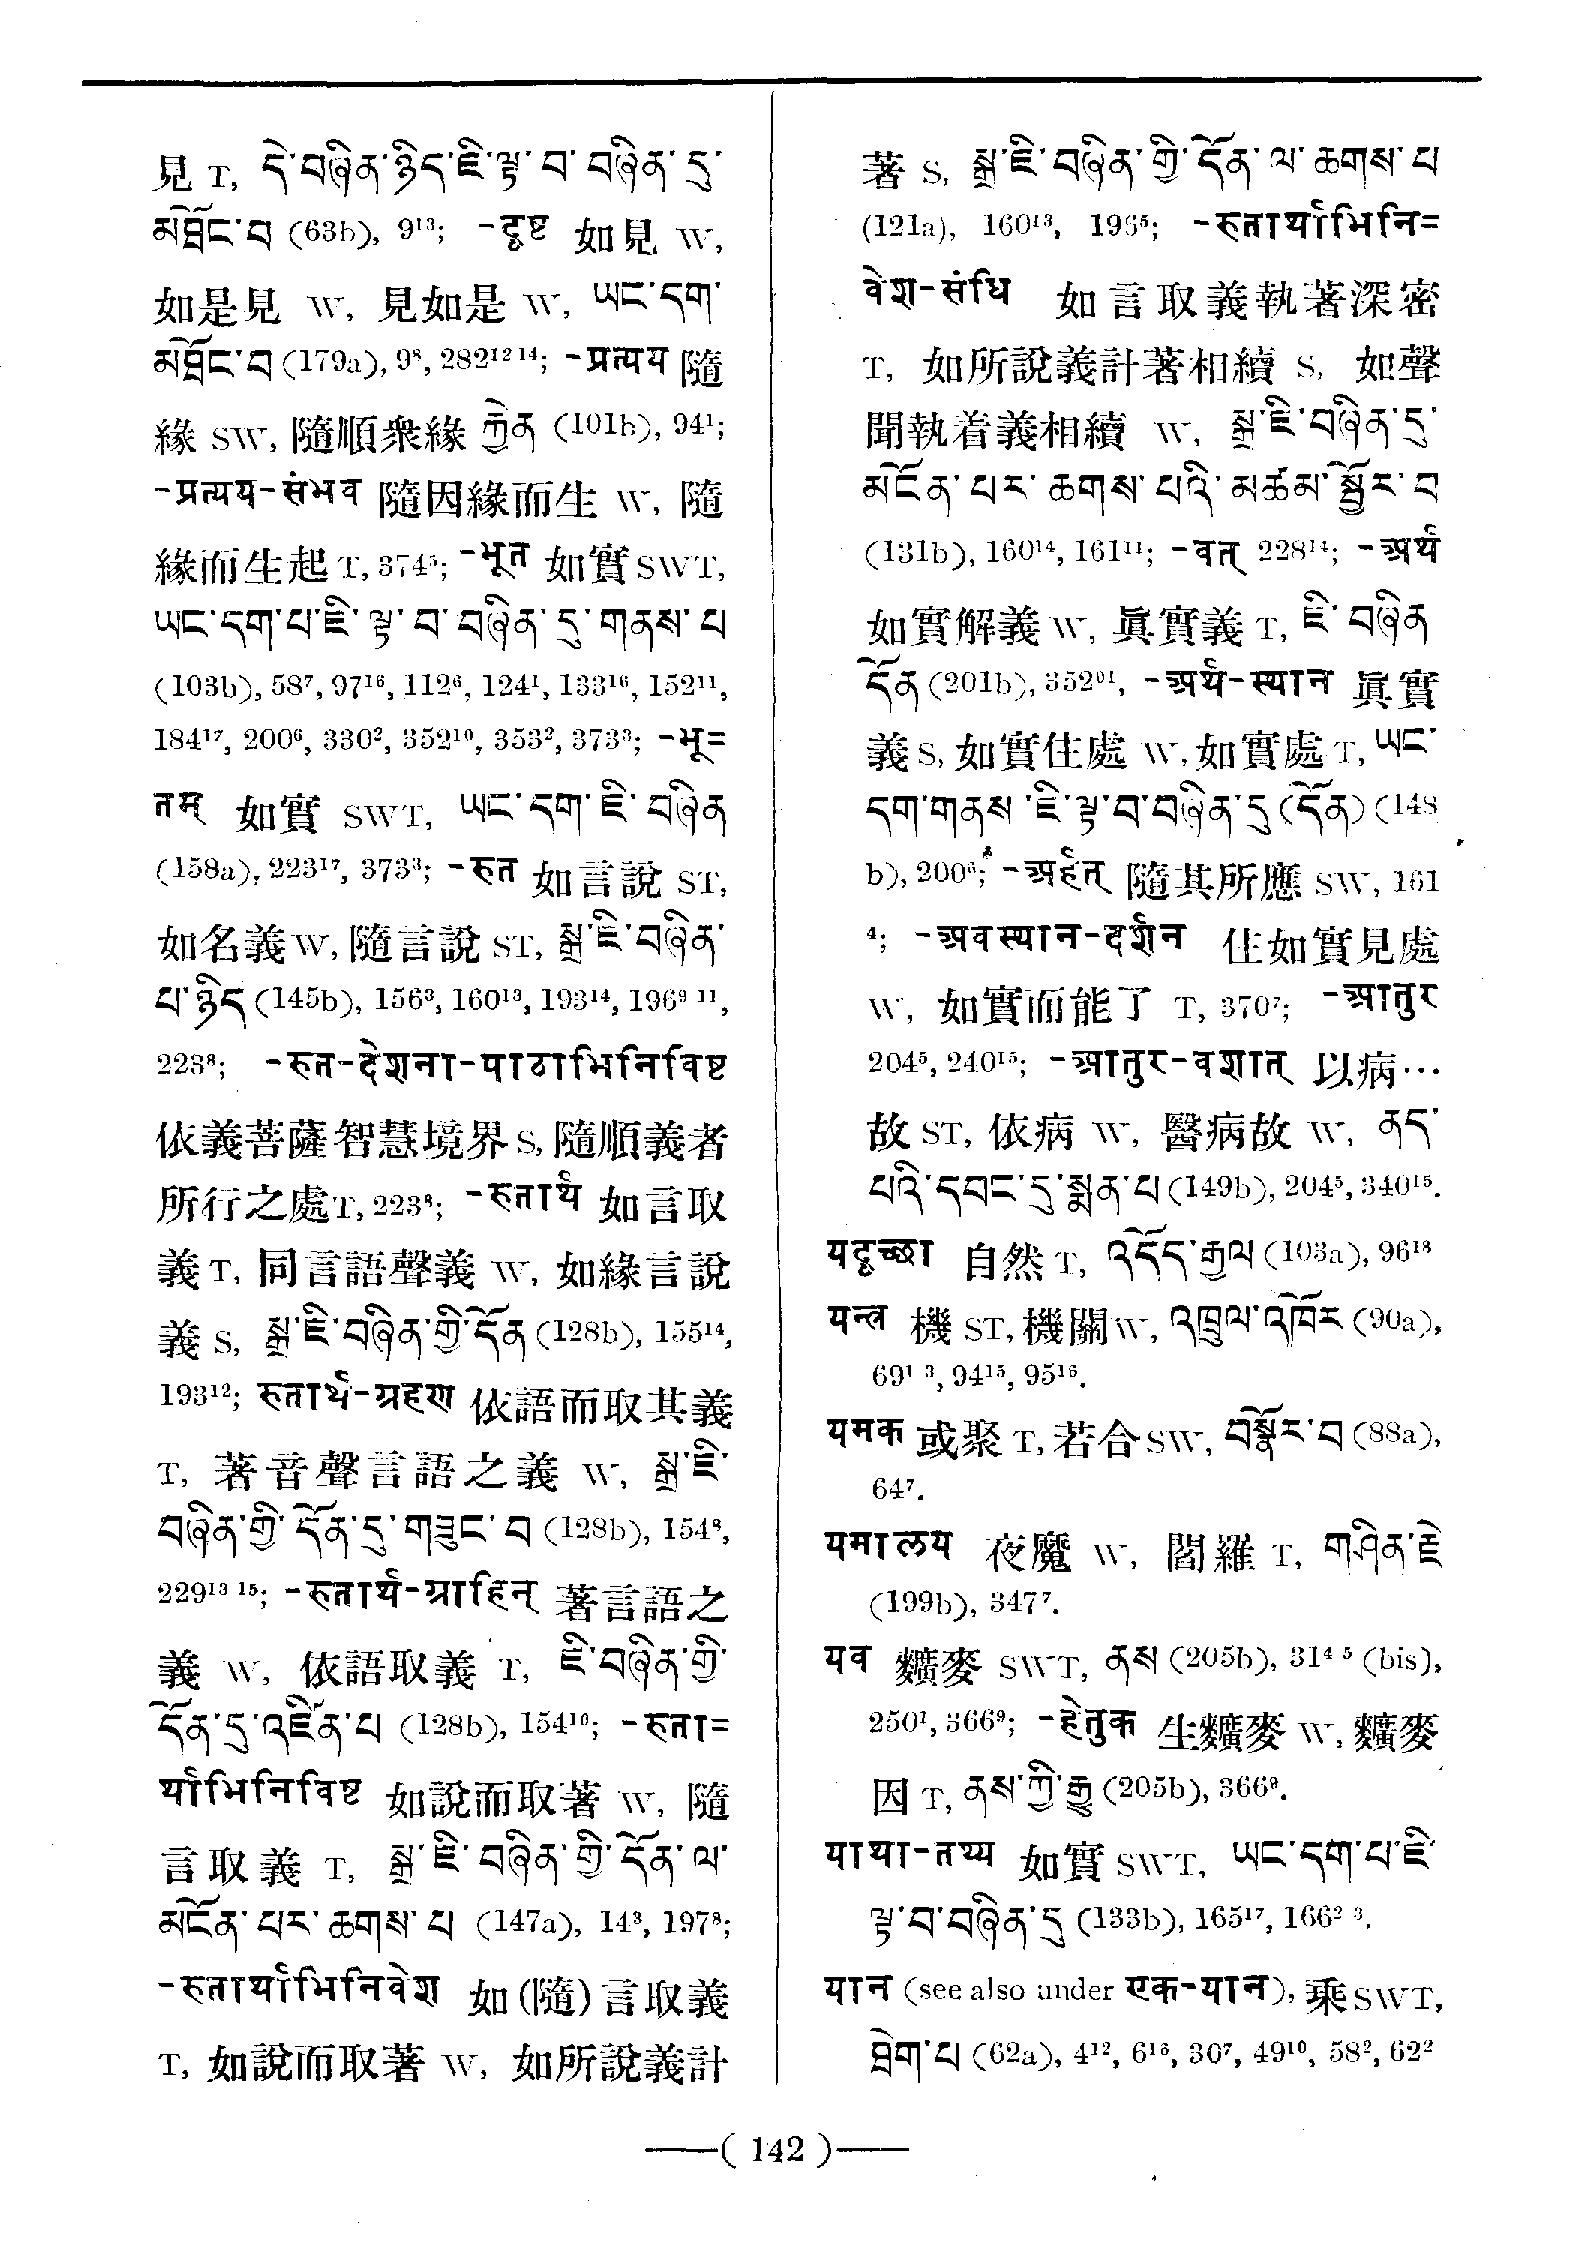 見 T, དེ་བཞིན་ཉིད་ཇི་ལྟ་བ་བཞིན་དུ་
མཐོང་བ (63b), 9¹³; -दृष्ट 如見 W,
如是見 W, 見如是 W, ཡང་དག་
མཐོང་བ (179a), 9⁸, 282¹² ¹⁴; -प्रत्यय 隨
緣 SW, 隨順衆緣 རྐྱེན (101b), 94¹;
-प्रत्यय-संभव 隨因緣而生 W, 隨
緣而生起 T, 374⁵; -भूत 如實 SWT,
ཡང་དག་པ་ཇི་ལྟ་བ་བཞིན་དུ་གནས་པ
(103b), 58⁷, 97¹⁶, 112⁶, 124¹, 133¹⁶, 152¹¹,
184¹⁷, 200⁶, 330², 352¹⁰, 353², 373³; -भू=
तम् 如實 SWT, ཡང་དག་ཇི་བཞིན
(158a), 223¹⁷, 373³; -रुत 如言說 ST,
如名義 W, 隨言說 ST, སྒྲ་ཇི་བཞིན་
པ་ཉིད (145b), 156³, 160¹³, 193¹⁴, 196⁹ ¹¹,
223⁸; -रुत-देशना-पाठाभिनिविष्ट
依義菩薩智慧境界 S, 隨順義者
所行之處 T, 223⁸; -रुतार्थ 如言取
義 T, 同言語聲義 W, 如緣言說
義 S, སྒྲ་ཇི་བཞིན་གྱི་དོན (128b), 155¹⁴,
193¹²; रुतार्थ-ग्रहण 依語而取其義
T, 著音聲言語之義 W, སྒྲ་ཇི་
བཞིན་གྱི་དོན་དུ་གཟུང་བ (128b), 154⁸,
229¹³ ¹⁵; -रुतार्थ-ग्राहिन् 著言語之
義 W, 依語取義 T, ཇི་བཞིན་གྱི་
དོན་དུ་འཛིན་པ (128b), 154¹⁰; -रुता=
र्थाभिनिविष्ट 如說而取著 W, 隨
言取義 T, སྒྲ་ཇི་བཞིན་གྱི་དོན་ལ་
མངོན་པར་ཆགས་པ (147a), 14³, 197⁸;
-रुतार्थाभिनिवेश 如(隨)言取義
T, 如說而取著 W, 如所說義計
著 S, སྒྲ་ཇི་བཞིན་གྱི་དོན་ལ་ཆགས་པ
(121a), 160¹³, 196⁵; -रुतार्थाभिनि=
वेश-संधि 如言取義執著深密
T, 如所說義計著相續 S, 如聲
聞執着義相續 W, སྒྲ་ཇི་བཞིན་དུ་
མངོན་པར་ཆགས་པའི་མཚམ་སྦྱོར་བ
(131b), 160¹⁴, 161¹¹; -वत् 228¹⁴; -अर्थ
如實解義 W, 眞實義 T, ཇི་བཞིན
དོན (201b), 352⁰¹, -अर्थ-स्थान 眞實
義 S, 如實住處 W, 如實處 T, ཡང་
དག་གནས་ཇི་ལྟ་བ་བཞིན་དུ (དོན) (148
b), 200⁶; -अर्हत् 隨其所應 SW, 161
⁴; -अवस्थान-दर्शन 住如實見處
W, 如實而能了 T, 370⁷; -आतुर
204⁵, 240¹⁵; -आतुर-वशात् 以病…
故 ST, 依病 W, 醫病故 W, ནད་
པའི་དབང་དུ་སྨན་པ (149b), 204⁵, 340¹⁵.
यदृच्छा 自然 T, འདོད་རྒྱལ (103a), 96¹⁸
यन्त्र 機 ST, 機關 W, འཁྲུལ་འཁོར (90a),
69¹ ³, 94¹⁵, 95¹⁶.
यमक 或聚 T, 若合 SW, བསྣོར་བ (88a),
64⁷.
यमालय 夜魔 W, 閻羅 T, གཤིན་རྗེ
(199b), 347⁷.
यव 䵃麥 SWT, ནས (205b), 31⁴ ⁵ (bis),
250¹, 366⁹; -हेतुक 生䵃麥 W, 䵃麥
因 T, ནས་ཀྱི་རྒྱུ (205b), 366⁹.
याथा-तथ्य 如實 SWT, ཡང་དག་པ་ཇི་
ལྟ་བ་བཞིན་དུ (133b), 165¹⁷, 166² ³.
यान (see also under एक-यान), 乘 SWT,
ཐེག་པ (62a), 4¹², 6¹⁵, 30⁷, 49¹⁰, 58², 62²
( 142 )